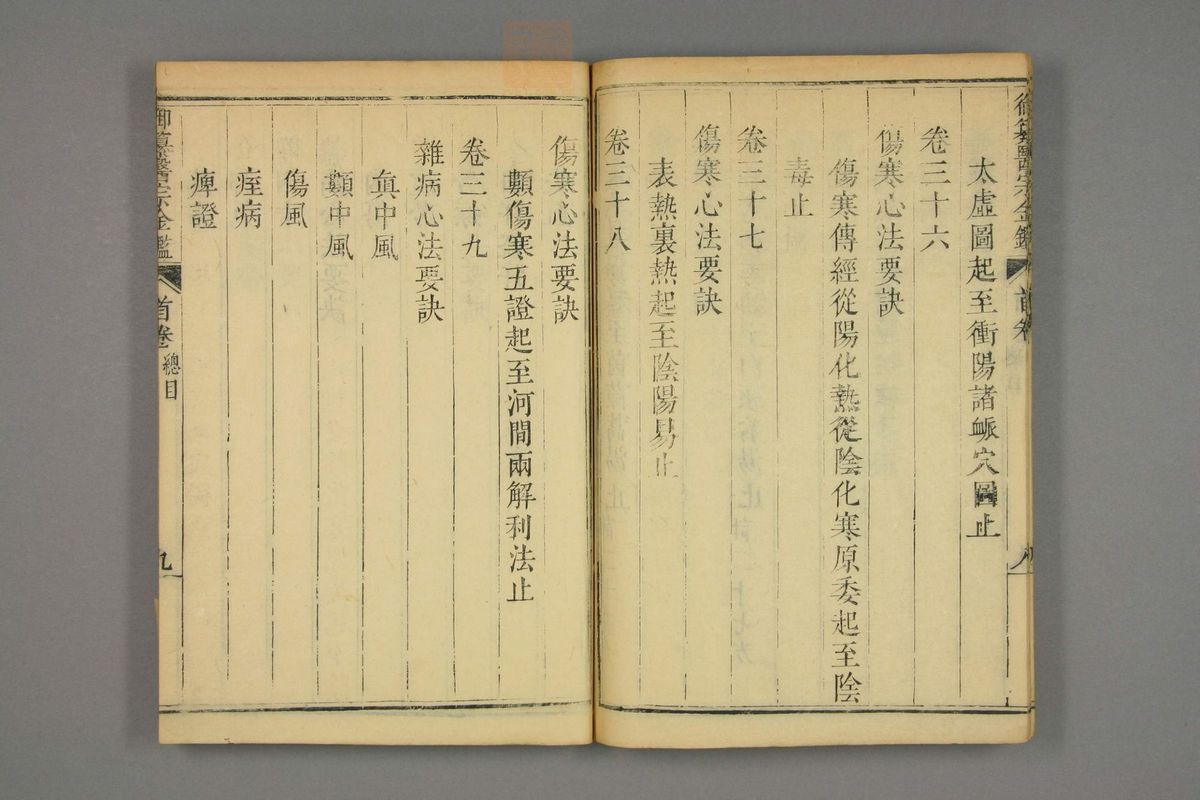 御纂醫宗金鑑
首卷
八
太虛圖起至衝陽諸脈穴圖止
卷三十六
傷寒心法要訣
傷寒傳經從陽化熱從陰化寒原委起至陰
毒止
卷三十七
傷寒心法要訣
表熱裏熱起至陰陽易止
卷三十八
傷寒心法要訣
類傷寒五證起至河間兩解利法止
卷三十九
雜病心法要訣
眞中風
類中風
傷風
痓病
痺證
御纂醫宗金鑑
首卷
總目
九